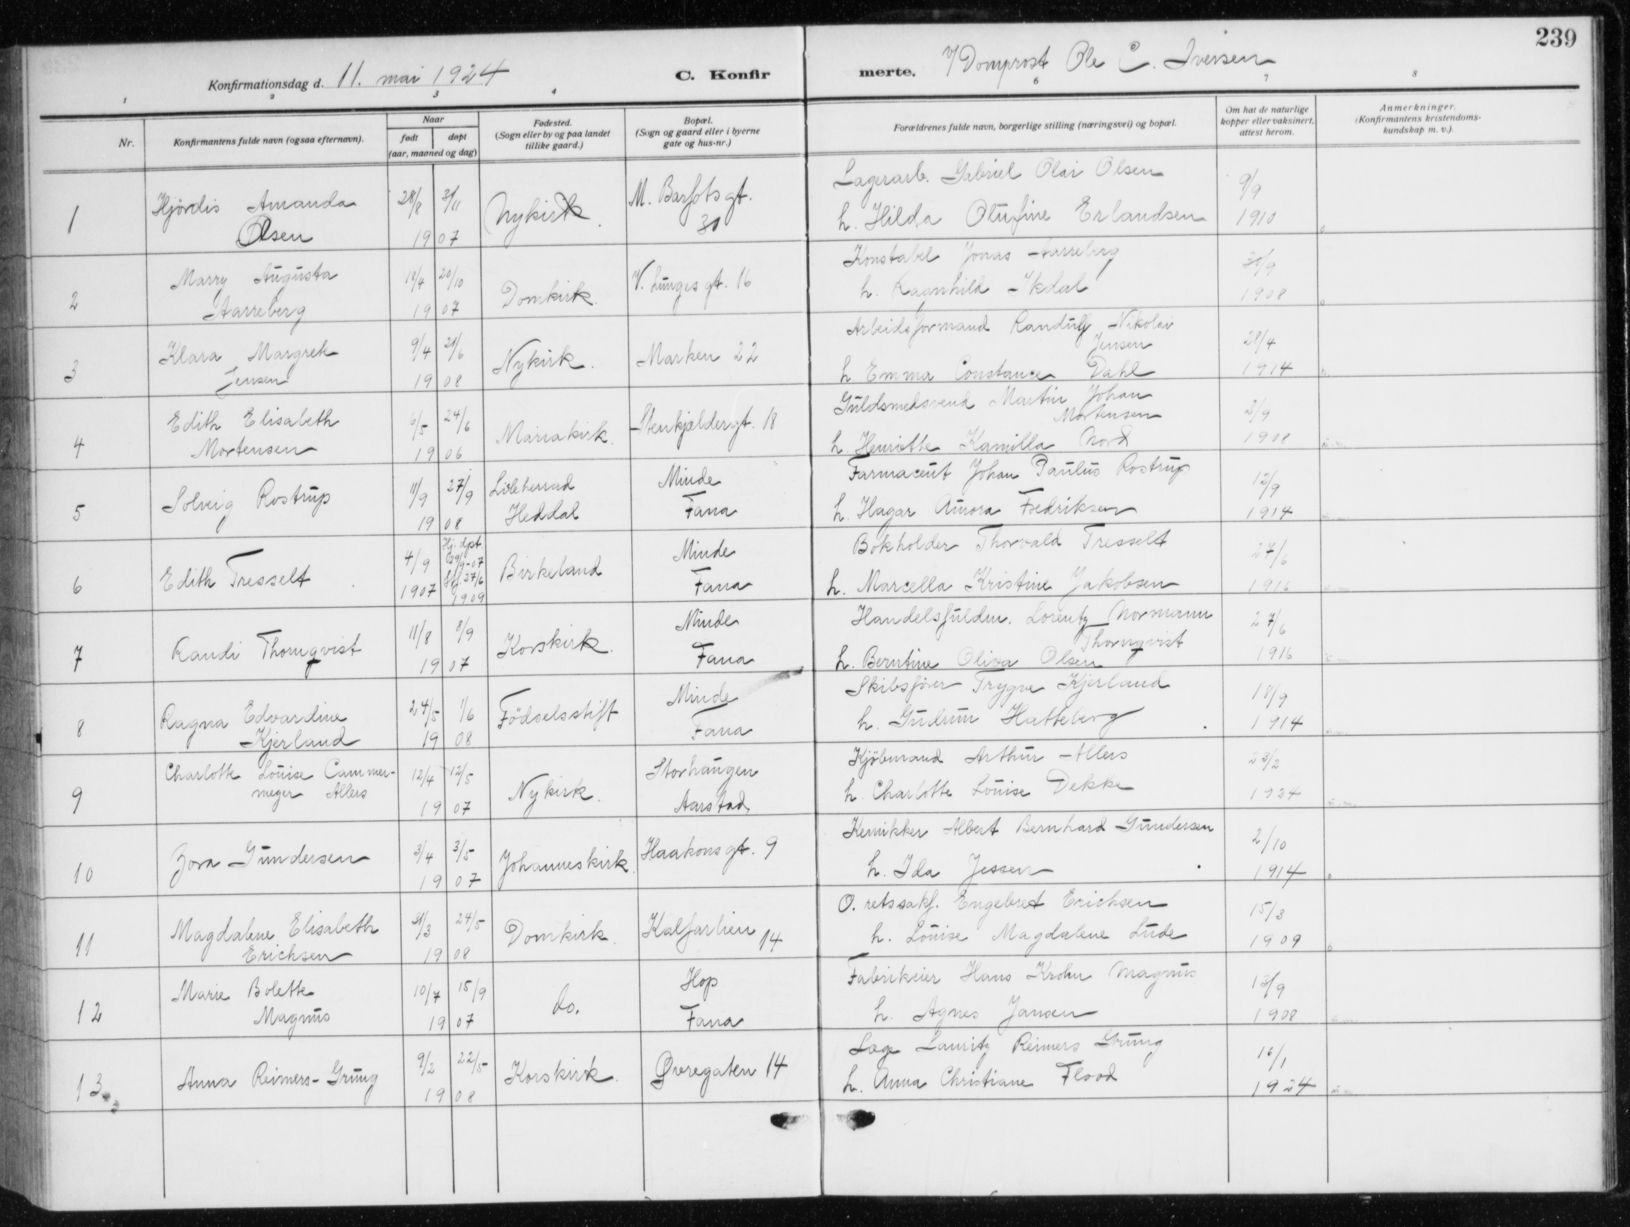 239
Konfirmationsdag d. 11. mai 1924 C. Konfirmerte. v/ Domprost Ole C. Iversen
1 2 3 4 6 7 8
Nr.
Konfirmantens fulde navn (ogsaa efternavn).
Naar
født døpt
(aar, maaned og dag)
Fødested.
(Sogn eller by og paa landet
tillike gaard.)
Bopæl.
(Sogn og gaard eller i byerne
gate og hus-nr.)
Forældrenes fulde navn, borgerlige stilling (næringsvei) og bopæl.
Om hat de naturlige
kopper eller vaksinert,
attest herom.
Anmerkninger.
(Konfirmantens kristendoms-
kundskap m. v.).
1 Hjördis Amanda Olsen 28/8 3/11 1907 Nykirk. M. Barfots gt. 30
Lagerarb. Gabriel Olai Olsen
h. Hilda Olufine Erlandsen 9/9 1910
2 Marry Augusta Aarreberg 18/4 20/10 1907 Domkirk. V. Lunges gt. 16
Konstabel Jonas Aarreberg
h. Ragnhild Ikdal /9 1908
3 Klara Margrete Jensen 9/4 21/6 1908 Nykirk. Marken 22
Arbeidsformand Randulf Nikolai Jensen
h. Emma Constance Dahl 28/4 1914
4 Edith Elisabeth Mortensen 6/5 24/6 1906 Mariakirk. Stenkjældergt. 18
Guldsmedsvend Martin Johan Mortensen
h. Henriette Kamilla Nord 2/9 1908
5 Solveig Rostrup 11/9 27/9 1908 Lilleherrad Heddal Minde Fana
Farmaceut Johan Paulus Rostrup
h. Hagar Aurora Fredriksen 12/9 1914
6 Edith Tresselt 4/9 1907 Hj. døpt 29/9-07 27/6 1909 Birkeland Minde Fana
Bokholder Thorvald Tresselt
h. Marcella Kristine Jakobsen 27/6 1916
7 Randi Thornqvist 11/8 8/9 1907 Korskirk. Minde Fana
Handelsfuldm. Lorentz Normann Thornqvist
h. Berntine Oliva Olsen 27/6 1916
8 Ragna Edvardine Kjerland 24/5 1/6 1908 Födselsstift Minde Fana
Skibsförer Trygve Kjerland
h. Gudrun Hatteberg 18/9 1914
9 Charlotte Louise Cammermeyer Allers 12/4 12/5 1907 Nykirk. Storhaugen Aarstad
Kjöbmand Arthur Allers
h. Charlotte Louise Dekke 23/2 1924
10 Zora Gundersen 3/4 3/5 1907 Johanneskirk. Haakonsgt. 9
Kemikker Albert Bernhard Gundersen
h. Ida Jessen 2/10 1914
11 Magdalene Elisabeth Erichsen /3 24/5 1908 Domkirk. Kalfarlien 14
O. retssakf. Engebret Erichsen
h. Louise Magdalene Lude 15/3 1909
12 Marie Bolette Magnus 10/7 15/9 1907 do. Hop Fana
Fabrikeier Hans Krohn Magnus
h. Agnes Jansen 13/9 1908
13 Anna Reimers-Grung 9/2 22/5 1908 Korskirk. Øvregaten 14
Læge Lauritz Reimers Grung
h. Anna Christiane Flood 16/1 1924